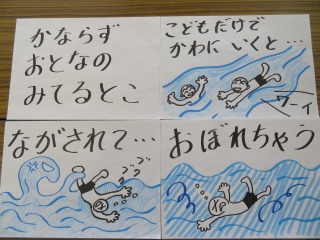 かならず
おとなの
みてるとこ
こどもだけで
かわに いくと…
ワーイ
ながされて…
おぼれちゃう